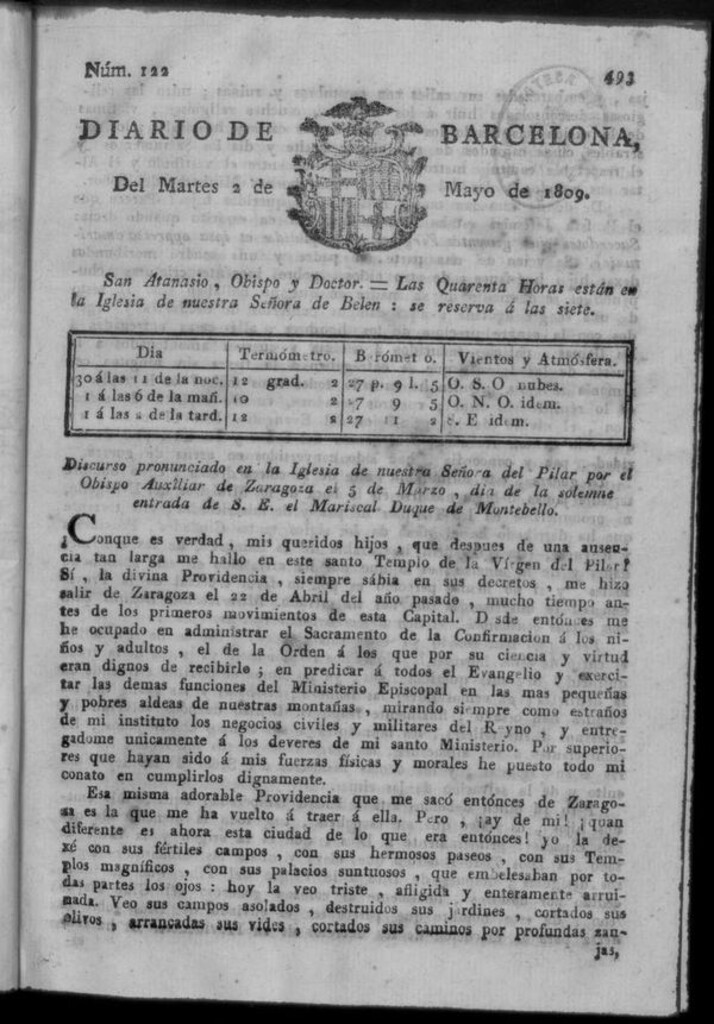 Núm. 122
493
DIARIO DE BARCELONA,
Del Martes 2 de Mayo de 1809.
San Atanasio, Obispo y Doctor. = Las Quarenta Horas están en
la Iglesia de nuestra Señora de Belen : se reserva á las siete.
Dia Termómetro. Barómetro. Vientos y Atmósfera.
30 á las 11 de la noc. 12 grad. 2 27 p. 9 l. 5 O. S. O nubes.
1 á las 6 de la mañ. 10 2 27 9 5 O. N. O. idem.
1 á las 2 de la tard. 12 2 27 11 2 E idem.
Discurso pronunciado en la Iglesia de nuestra Señora del Pilar por el
Obispo Auxîliar de Zaragoza el 5 de Marzo, dia de la solemne
entrada de S. E. el Mariscal Duque de Montebello.
¿Conque es verdad, mis queridos hijos, que despues de una ausen-
cia tan larga me hallo en este santo Templo de la Vírgen del Pilar?
Sí, la divina Providencia, siempre sábia en sus decretos, me hizo
salir de Zaragoza el 22 de Abril del año pasado, mucho tiempo an-
tes de los primeros movimientos de esta Capital. Desde entónces me
he ocupado en administrar el Sacramento de la Confirmacion á los ni-
ños y adultos, el de la Orden á los que por su ciencia y virtud
eran dignos de recibirlo; en predicar á todos el Evangelio y exerci-
tar las demas funciones del Ministerio Episcopal en las mas pequeñas
y pobres aldeas de nuestras montañas, mirando siempre como estraños
de mi instituto los negocios civiles y militares del Reyno, y entre-
gadome unicamente á los deveres de mi santo Ministerio. Por superio-
res que hayan sido á mis fuerzas físicas y morales he puesto todo mi
conato en cumplirlos dignamente.
Esa misma adorable Providencia que me sacó entónces de Zarago-
za es la que me ha vuelto á traer á ella. Pero, ¡ay de mi! ¡quan
diferente es ahora esta ciudad de lo que era entónces! yo la de-
xé con sus fértiles campos, con sus hermosos paseos, con sus Tem-
plos magníficos, con sus palacios suntuosos, que embelesaban por to-
das partes los ojos : hoy la veo triste, afligida y enteramente arrui-
nada. Veo sus campos asolados, destruidos sus jardines, cortados sus
olivos, arrancadas sus vides, cortados sus caminos por profundas zan-
jas,